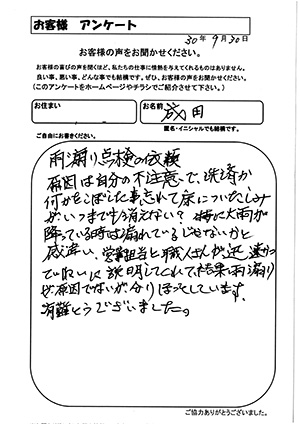 お客様 アンケート
30年 9月 30日
お客様の声をお聞かせください。
お客様の喜びの声を聞くほど、私たちの仕事に情熱を与えてくれるものはありません。
良い事、悪い事、どんな事でも結構です。ぜひ、お客様の声をお聞かせください。
(このアンケートをホームページやチラシでご紹介させて下さい。)
お住まい
お名前 成田
匿名・イニシャルでも結構です。
ご自由にお書きください。
雨漏り点検の依頼
原因は自分の不注意で、洗済か
何かをこぼした事忘れて床についたしみ
がいつまでも消えない? 特に大雨が
降っている時は漏れているじゃないかと
感違い、営業担当と職人さんが
に説明してくれて結果雨漏り
が原因でないが分りほっとしています。
有難とうございました。
ご協力ありがとうございました。